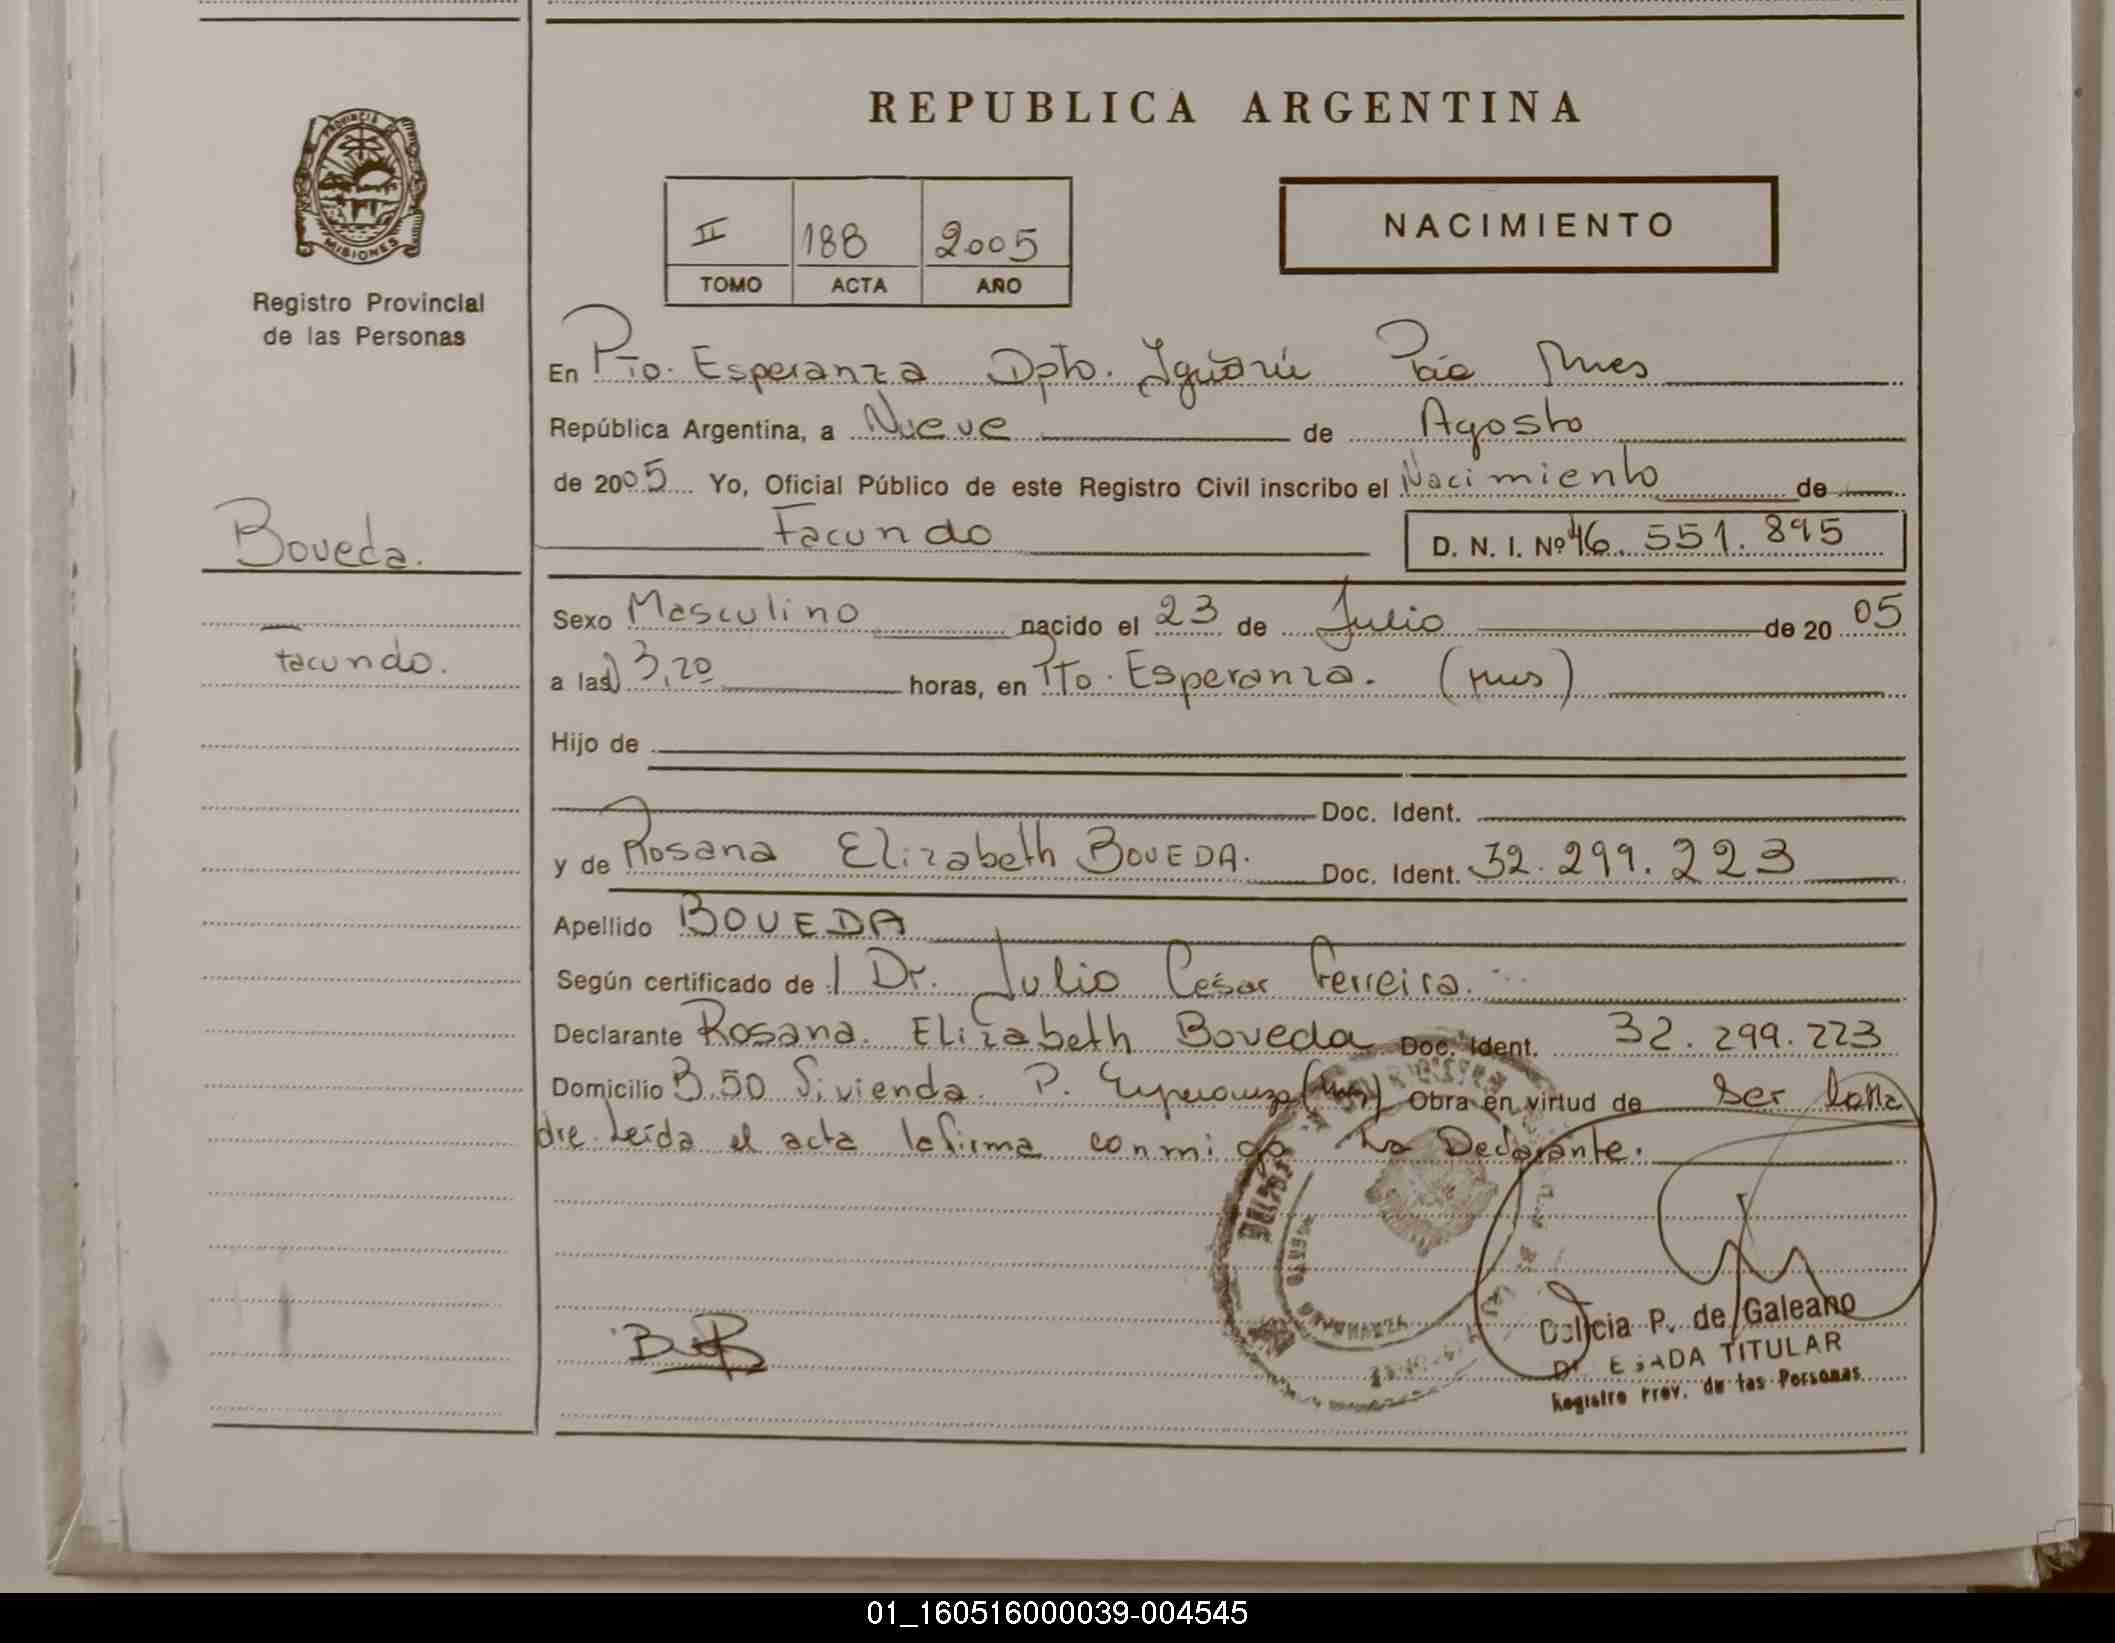 REPUBLICA ARGENTINA
PROVINCIA DE
MISIONES
Registro Provincial
de las Personas
II 188 2005
TOMO ACTA AÑO
NACIMIENTO
En Pto. Esperanza Dpto. Iguazú Pcia Mnes
República Argentina, a Nueve de Agosto
de 2005 Yo, Oficial Público de este Registro Civil inscribo el Nacimiento de
Facundo
D. N. I. Nº 46. 551. 895
Boveda.
Facundo.
Sexo Masculino nacido el 23 de Julio de 20 05
a las 3,20 horas, en Pto. Esperanza. (Mns)
Hijo de
Doc. Ident.
y de Rosana Elizabeth BOVEDA. Doc. Ident. 32. 299. 223
Apellido BOVEDA
Según certificado de Dr. Julio Cesar Ferreira.
Declarante Rosana. Elizabeth Boveda Doc. Ident. 32. 299. 223
Domicilio B. 50 Vivienda. P. Esperanza (Mns) Obra en virtud de Ser la Ma
dre. Leída el acta la firma conmigo La Declarante.
P. de Galeano
TITULAR
Registro Prov. de las Personas
01_160516000039-004545